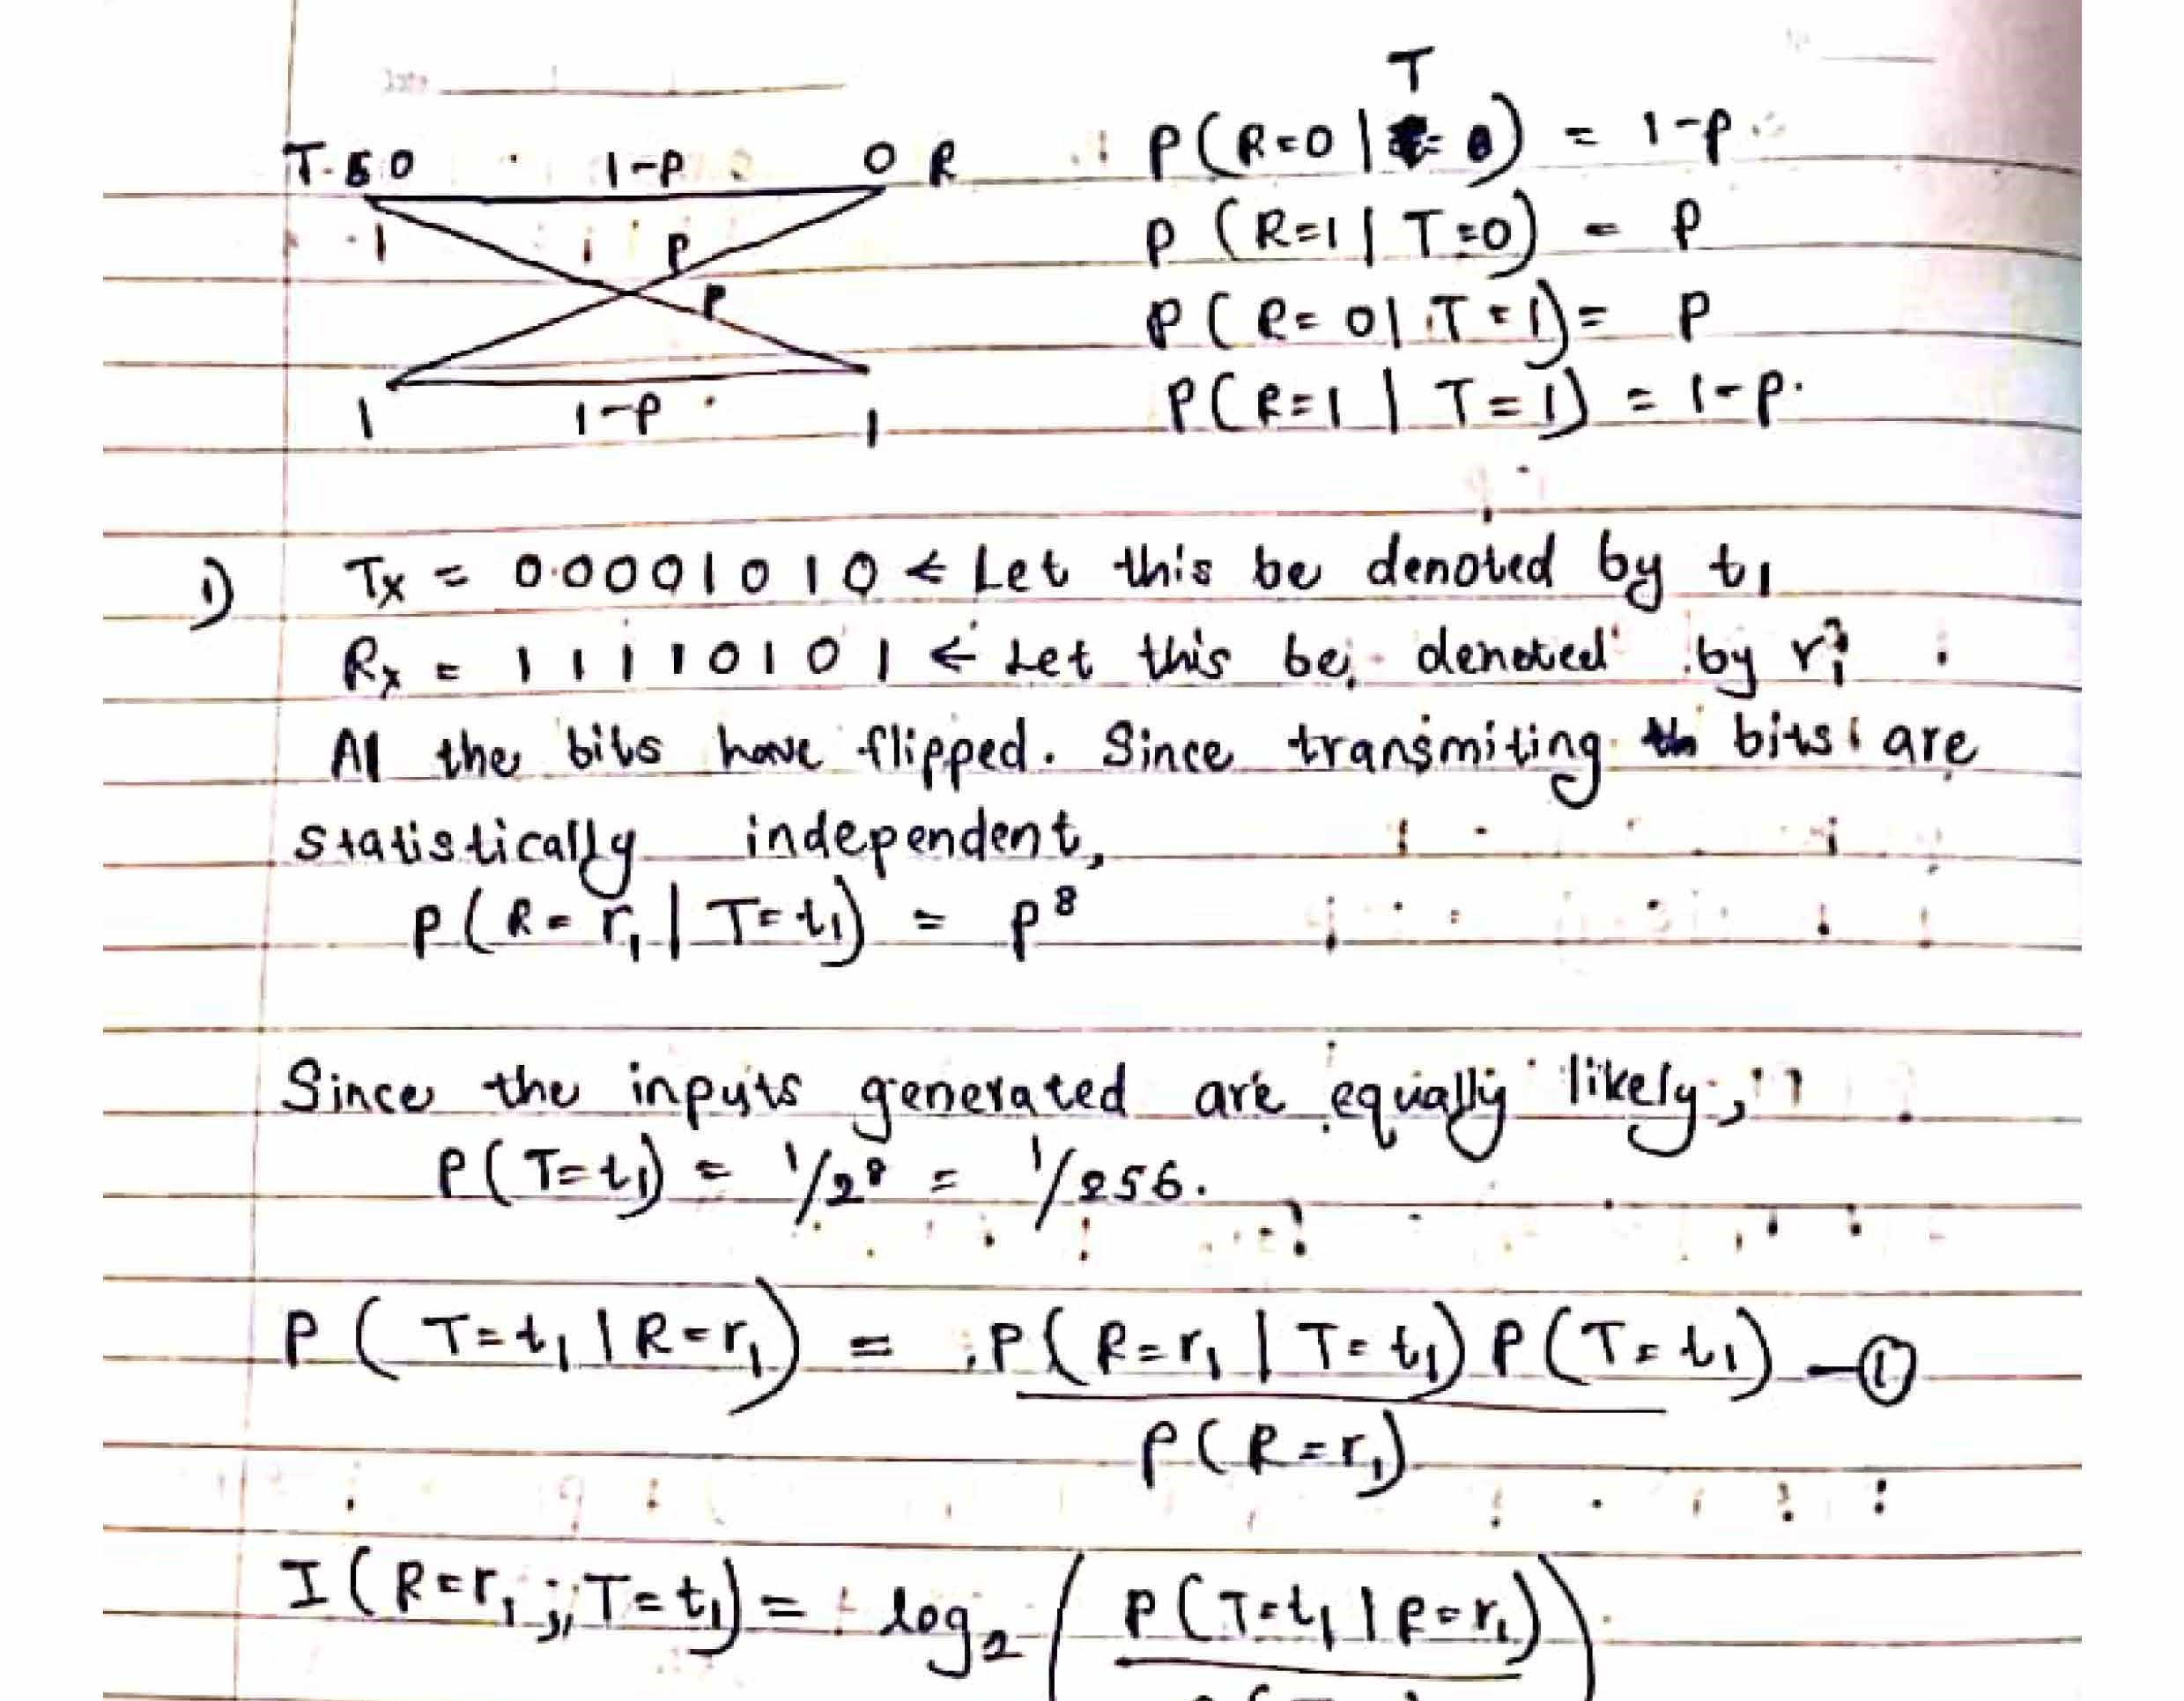 T
T. 0 1-p 0 R P(R=0 | T = 0) = 1-p
1 p P (R=1 | T=0) = p
p P(R=0 | T=1) = p
1 1-p 1 P(R=1 | T=1) = 1-p.
i) Tx = 00001010 ← Let this be denoted by t₁
Rx = 11110101 ← Let this be denoted by r₁
All the bits have flipped. Since transmiting bits are
statistically independent,
P(R=r₁ | T=t₁) = p⁸
Since the inputs generated are equally likely,
P(T=t₁) = 1/2⁸ = 1/256.
P(T=t₁ | R=r₁) = P(R=r₁ | T=t₁) P(T=t₁) —①
P(R=r₁)
I(R=r₁; T=t₁) = log₂ ( P(T=t₁ | R=r₁) )